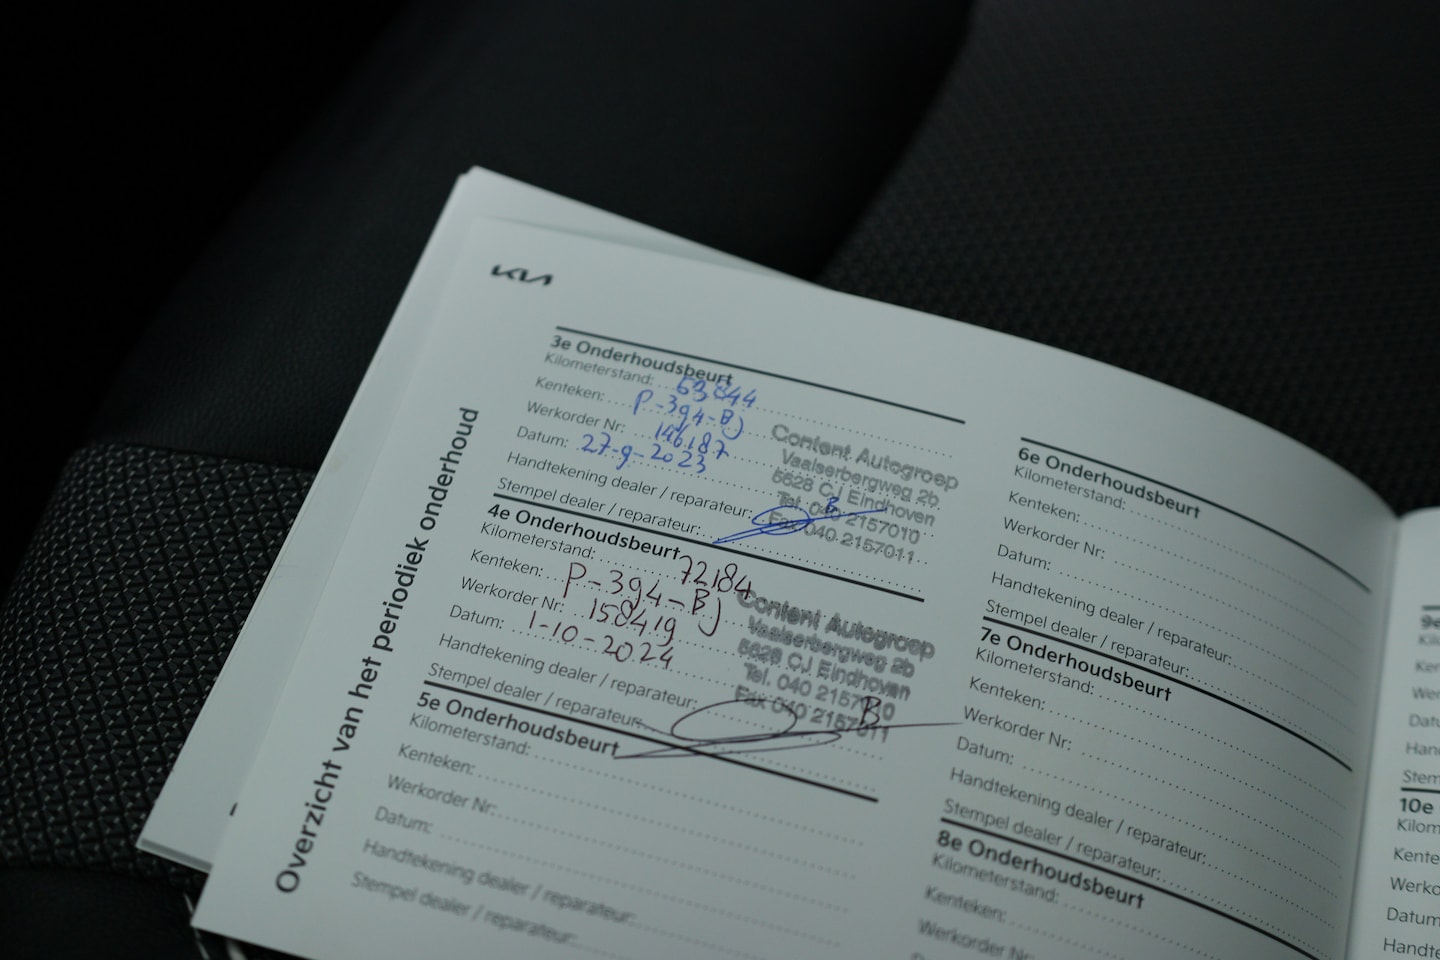 KIA
Overzicht van het periodiek onderhoud
3e Onderhoudsbeurt
Kilometerstand: 53.844
Kenteken: P-394-BJ
Werkorder Nr: 146187
Datum: 27-9-2023
Handtekening dealer / reparateur:
Stempel dealer / reparateur:
Content Autogroep
Vaalserbergweg 2b
5628 CJ Eindhoven
Tel. 040 2157010
Fax 040 2157011
4e Onderhoudsbeurt
Kilometerstand: 72184
Kenteken: P-394-BJ
Werkorder Nr: 158419
Datum: 1-10-2024
Handtekening dealer / reparateur:
Stempel dealer / reparateur:
Content Autogroep
Vaalserbergweg 2b
5628 CJ Eindhoven
Tel. 040 2157010
Fax 040 2157011
5e Onderhoudsbeurt
Kilometerstand:
Kenteken:
Werkorder Nr:
Datum:
Handtekening dealer / reparateur:
Stempel dealer / reparateur:
6e Onderhoudsbeurt
Kilometerstand:
Kenteken:
Werkorder Nr:
Datum:
Handtekening dealer / reparateur:
Stempel dealer / reparateur:
7e Onderhoudsbeurt
Kilometerstand:
Kenteken:
Werkorder Nr:
Datum:
Handtekening dealer / reparateur:
Stempel dealer / reparateur:
8e Onderhoudsbeurt
Kilometerstand:
Kenteken:
Werkorder Nr:
9e
Kil
Ken
Wer
Datu
Han
Stem
10e
Kilom
Kente
Werko
Datum
Handte